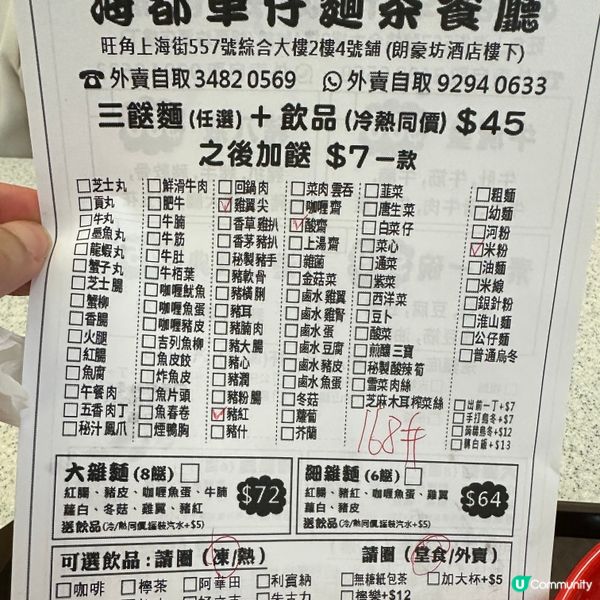 海都車仔麵茶餐廳
旺角上海街557號綜合大樓2樓4號舖 (朗豪坊酒店樓下)
☎外賣自取 3482 0569 外賣自取 9294 0633
三餸麵 (任選) + 飲品 (冷熱同價) $45
之後加餸 $7一款
□芝士丸
□貢丸
□牛丸
□墨魚丸
□龍蝦丸
□蟹子丸
□芝士腸
□蟹柳
□香腸
□火腿
□紅腸
□魚腐
□午餐肉
□五香肉丁
□秘汁鳳爪
□鮮滑牛肉
□肥牛
□牛腩
□牛筋
□牛肚
□牛栢葉
□咖喱魷魚
□咖喱魚蛋
□咖喱豬皮
□吉列魚柳
□魚皮餃
□炸魚皮
□魚片頭
□魚春卷
□煙鴨胸
□回鍋肉
☑雞翼尖
□香草雞扒
□香茅豬扒
□秘製豬手
□豬軟骨
□豬橫脷
□豬耳
□豬腩肉
□豬大腸
□豬心
□豬潤
□豬粉腸
☑豬紅
□豬什
□菜肉雲吞
□咖喱齋
☑酸齋
□上湯齋
□雜菌
□金菇菜
□鹵水雞翼
□鹵水雞腎
□鹵水蛋
□鹵水豆腐
□鹵水豬皮
□鹵水魚蛋
□冬菇
□蘿蔔
□芥蘭
□韮菜
□唐生菜
□白菜仔
□菜心
□通菜
□紫菜
□西洋菜
□豆卜
□酸菜
□煎釀三寶
□秘製酸辣筍
□雪菜肉絲
□芝麻木耳榨菜絲
168#
□粗麵
□幼麵
□河粉
☑米粉
□油麵
□米線
□銀針粉
□淮山麵
□公仔麵
□普通烏冬
□出前一丁+$7
□手打烏冬+$7
□蒟蒻烏冬+$12
□轉白飯+$13
大雜麵 (8餸) □
紅腸、豬皮、咖喱魚蛋、牛腩
蘿白、冬菇、雞翼、豬紅
送飲品(冷/熱同價,罐裝汽水+$5)
$72
細雜麵 (6餸) □
紅腸、豬紅、咖喱魚蛋、雞翼
蘿白、豬皮
送飲品(冷/熱同價,罐裝汽水+$5)
$64
可選飲品:請圈 (凍/熱) 請圈 (堂食/外賣)
□咖啡 □檸茶 □阿華田 □利賓納 □無糖紙包茶 □加大杯+$5
□檸樂+$12
U Community